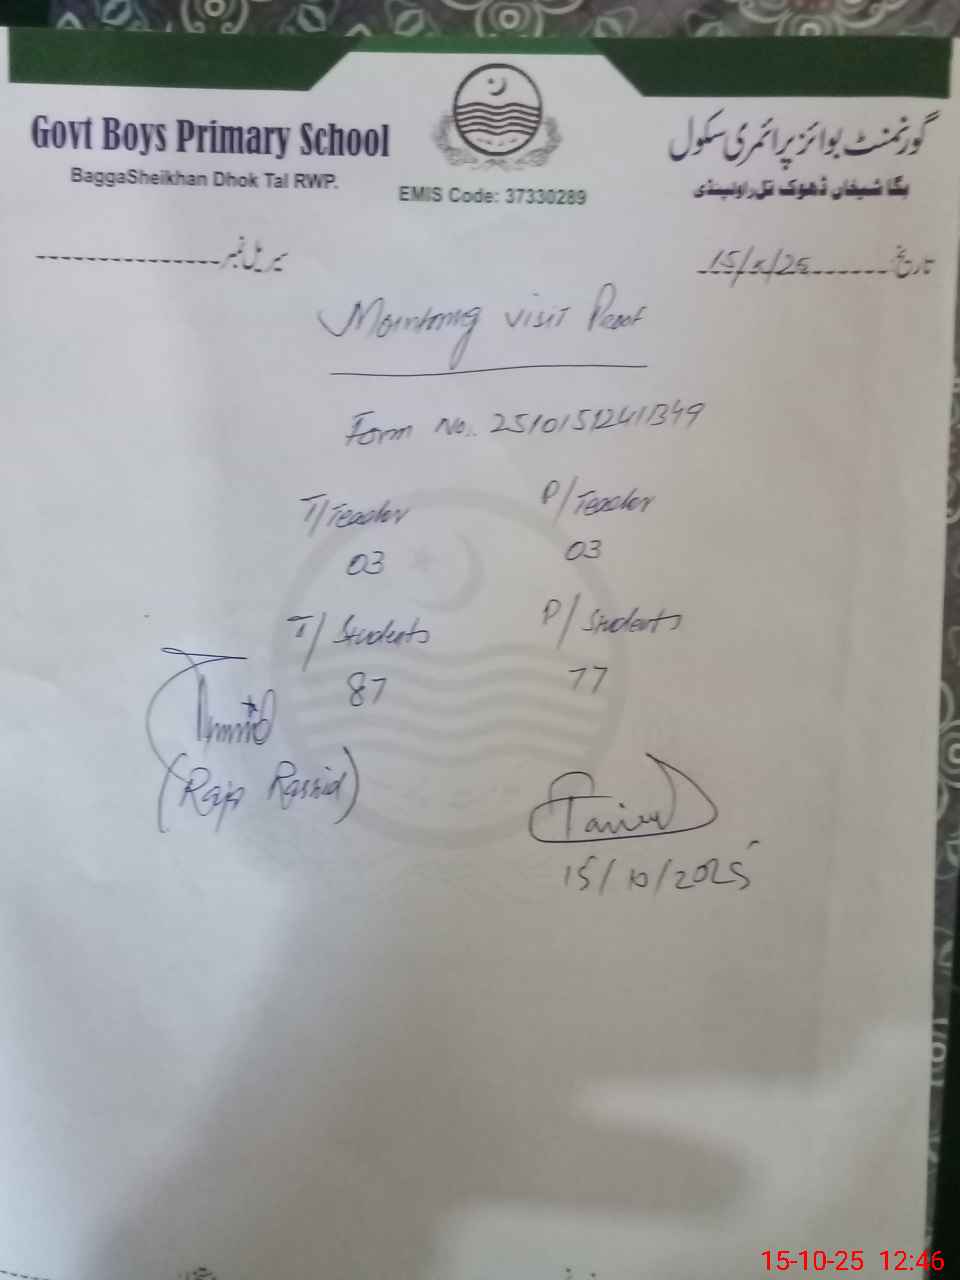 Govt Boys Primary School
BaggaSheikhan Dhok Tal RWP.
EMIS Code: 37330289
گورنمنٹ بوائز پرائمری سکول
بگا شیخاں ڈھوک تل راولپنڈی
سیریل نمبر
تاریخ 15/10/25
visit Proof
Form No. 
T/Teacher P/Teacher
03 03
T/Students P/Students
87 77
(Raja Rashid)
15/10/2025
15-10-25 12:46